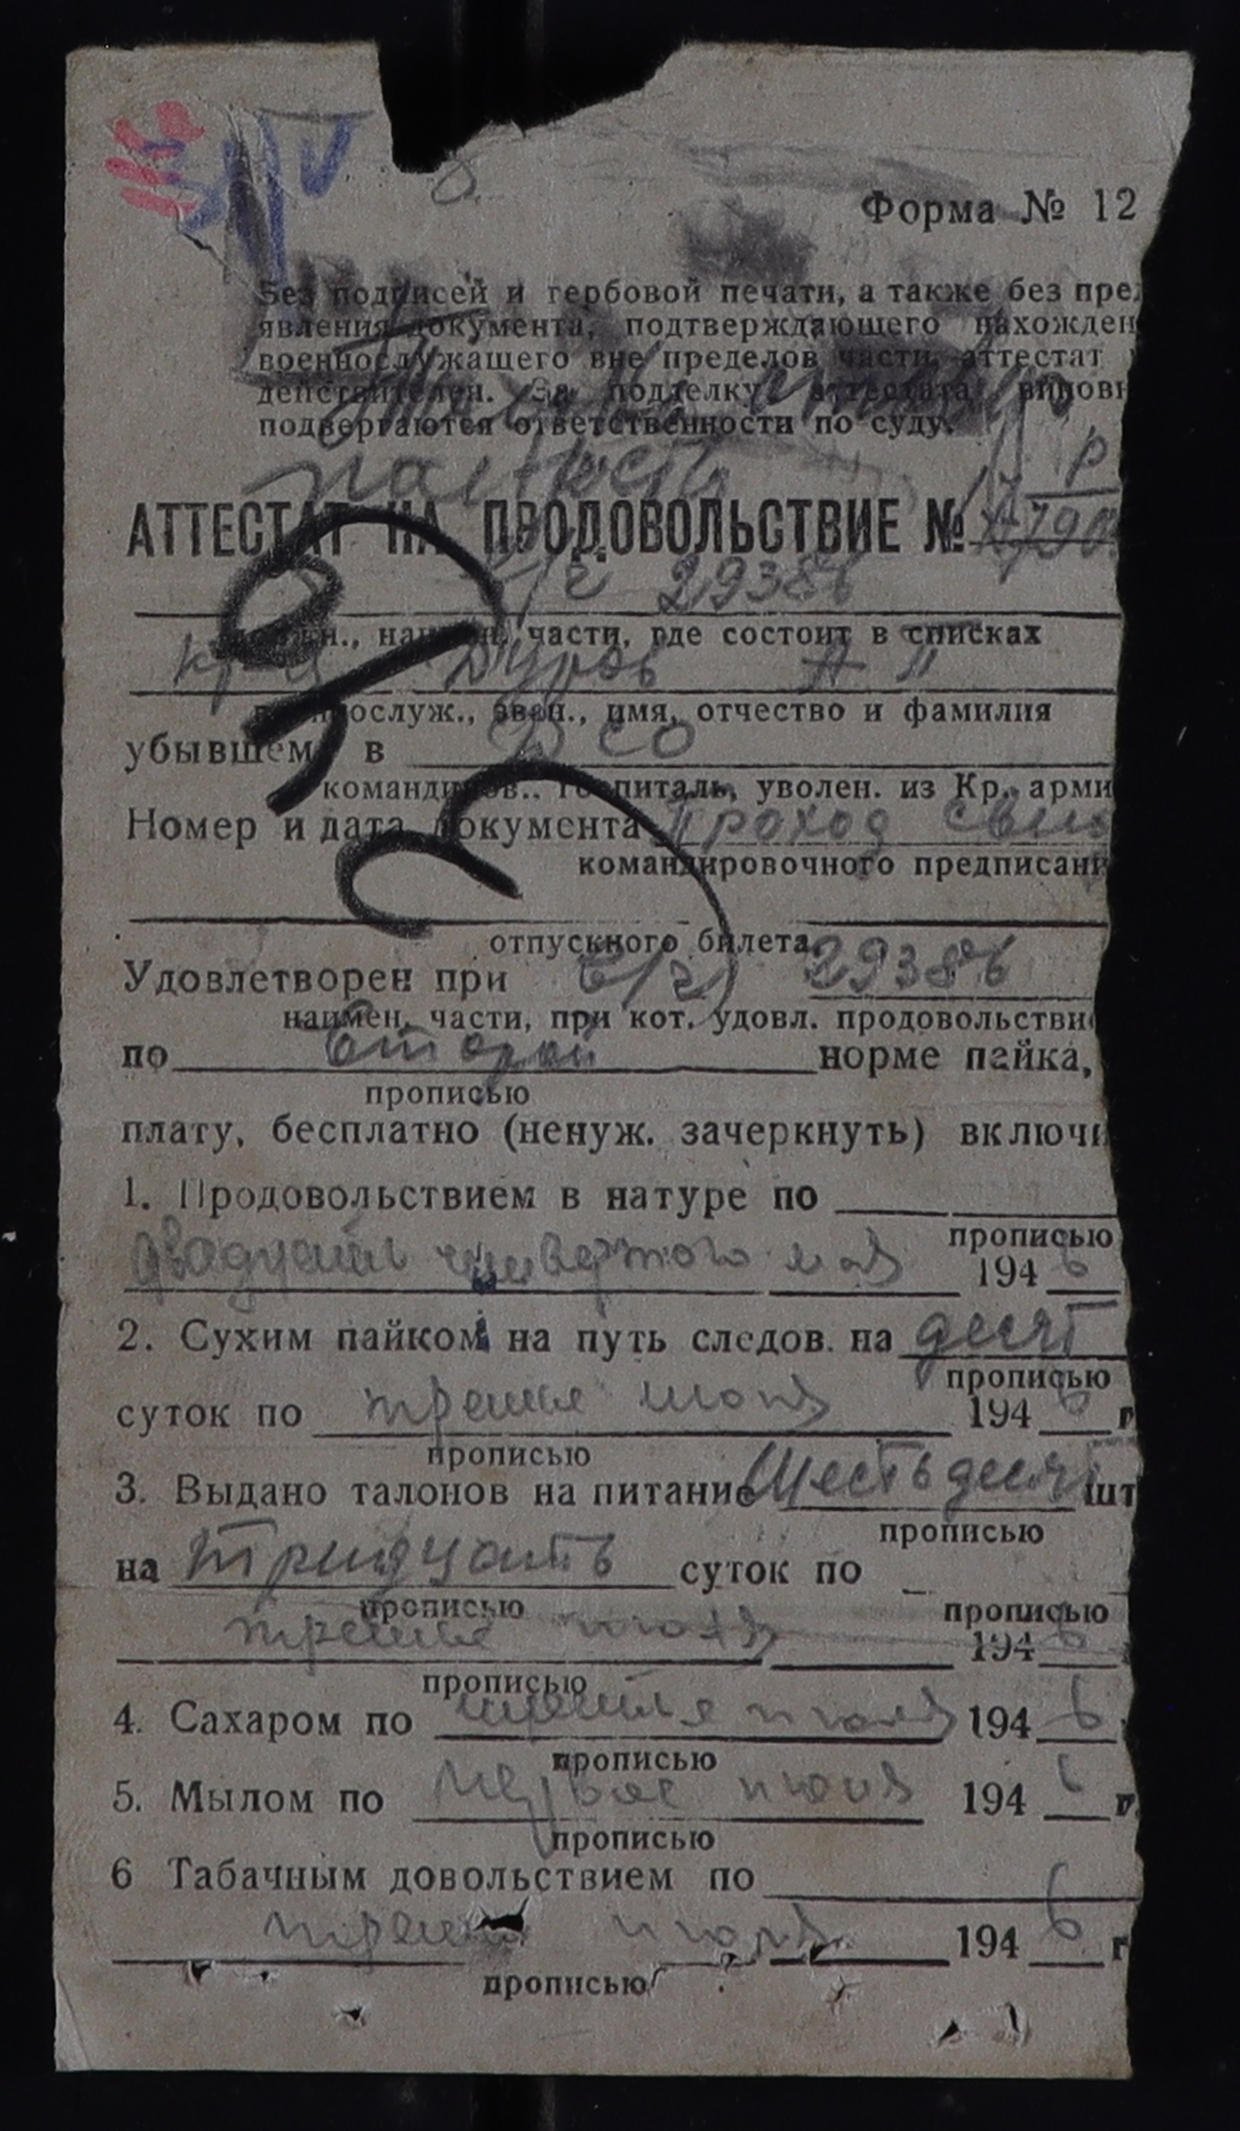 Форма № 12
Без подписей и гербовой печати, а также без пред
явления документа, подтверждающего нахожден
военнослужащего вне пределов части, аттестат
действителен. За подделку аттестата виновн
подвергаются ответственности по суду.
АТТЕСТАТ НА ПРОДОВОЛЬСТВИЕ №
29386
наимен. части, где состоит в списках
Дуров А П
военнослуж., зван., имя, отчество и фамилия
убывшем в
командиров., госпиталь, уволен. из Кр. арми
Номер и дата документа Проход свид
командировочного предписани
отпускного билета
Удовлетворен при в/ч 29386
наимен. части, при кот. удовл. продовольствие
по второй норме пайка,
прописью
плату, бесплатно (ненуж. зачеркнуть) включи
1. Продовольствием в натуре по
прописью
двадцать четвертого мая 194 6
2. Сухим пайком на путь следов. на десят
прописью
суток по третье июня 194 6 г
прописью
3. Выдано талонов на питание Шестьдесят шт
прописью
на тридцать суток по
прописью прописью
третье июля 194 6
прописью
4. Сахаром по третье июля 194 6
прописью
5. Мылом по первое июня 194 6 г.
прописью
6 Табачным довольствием по
третье июля 194 6 г
прописью